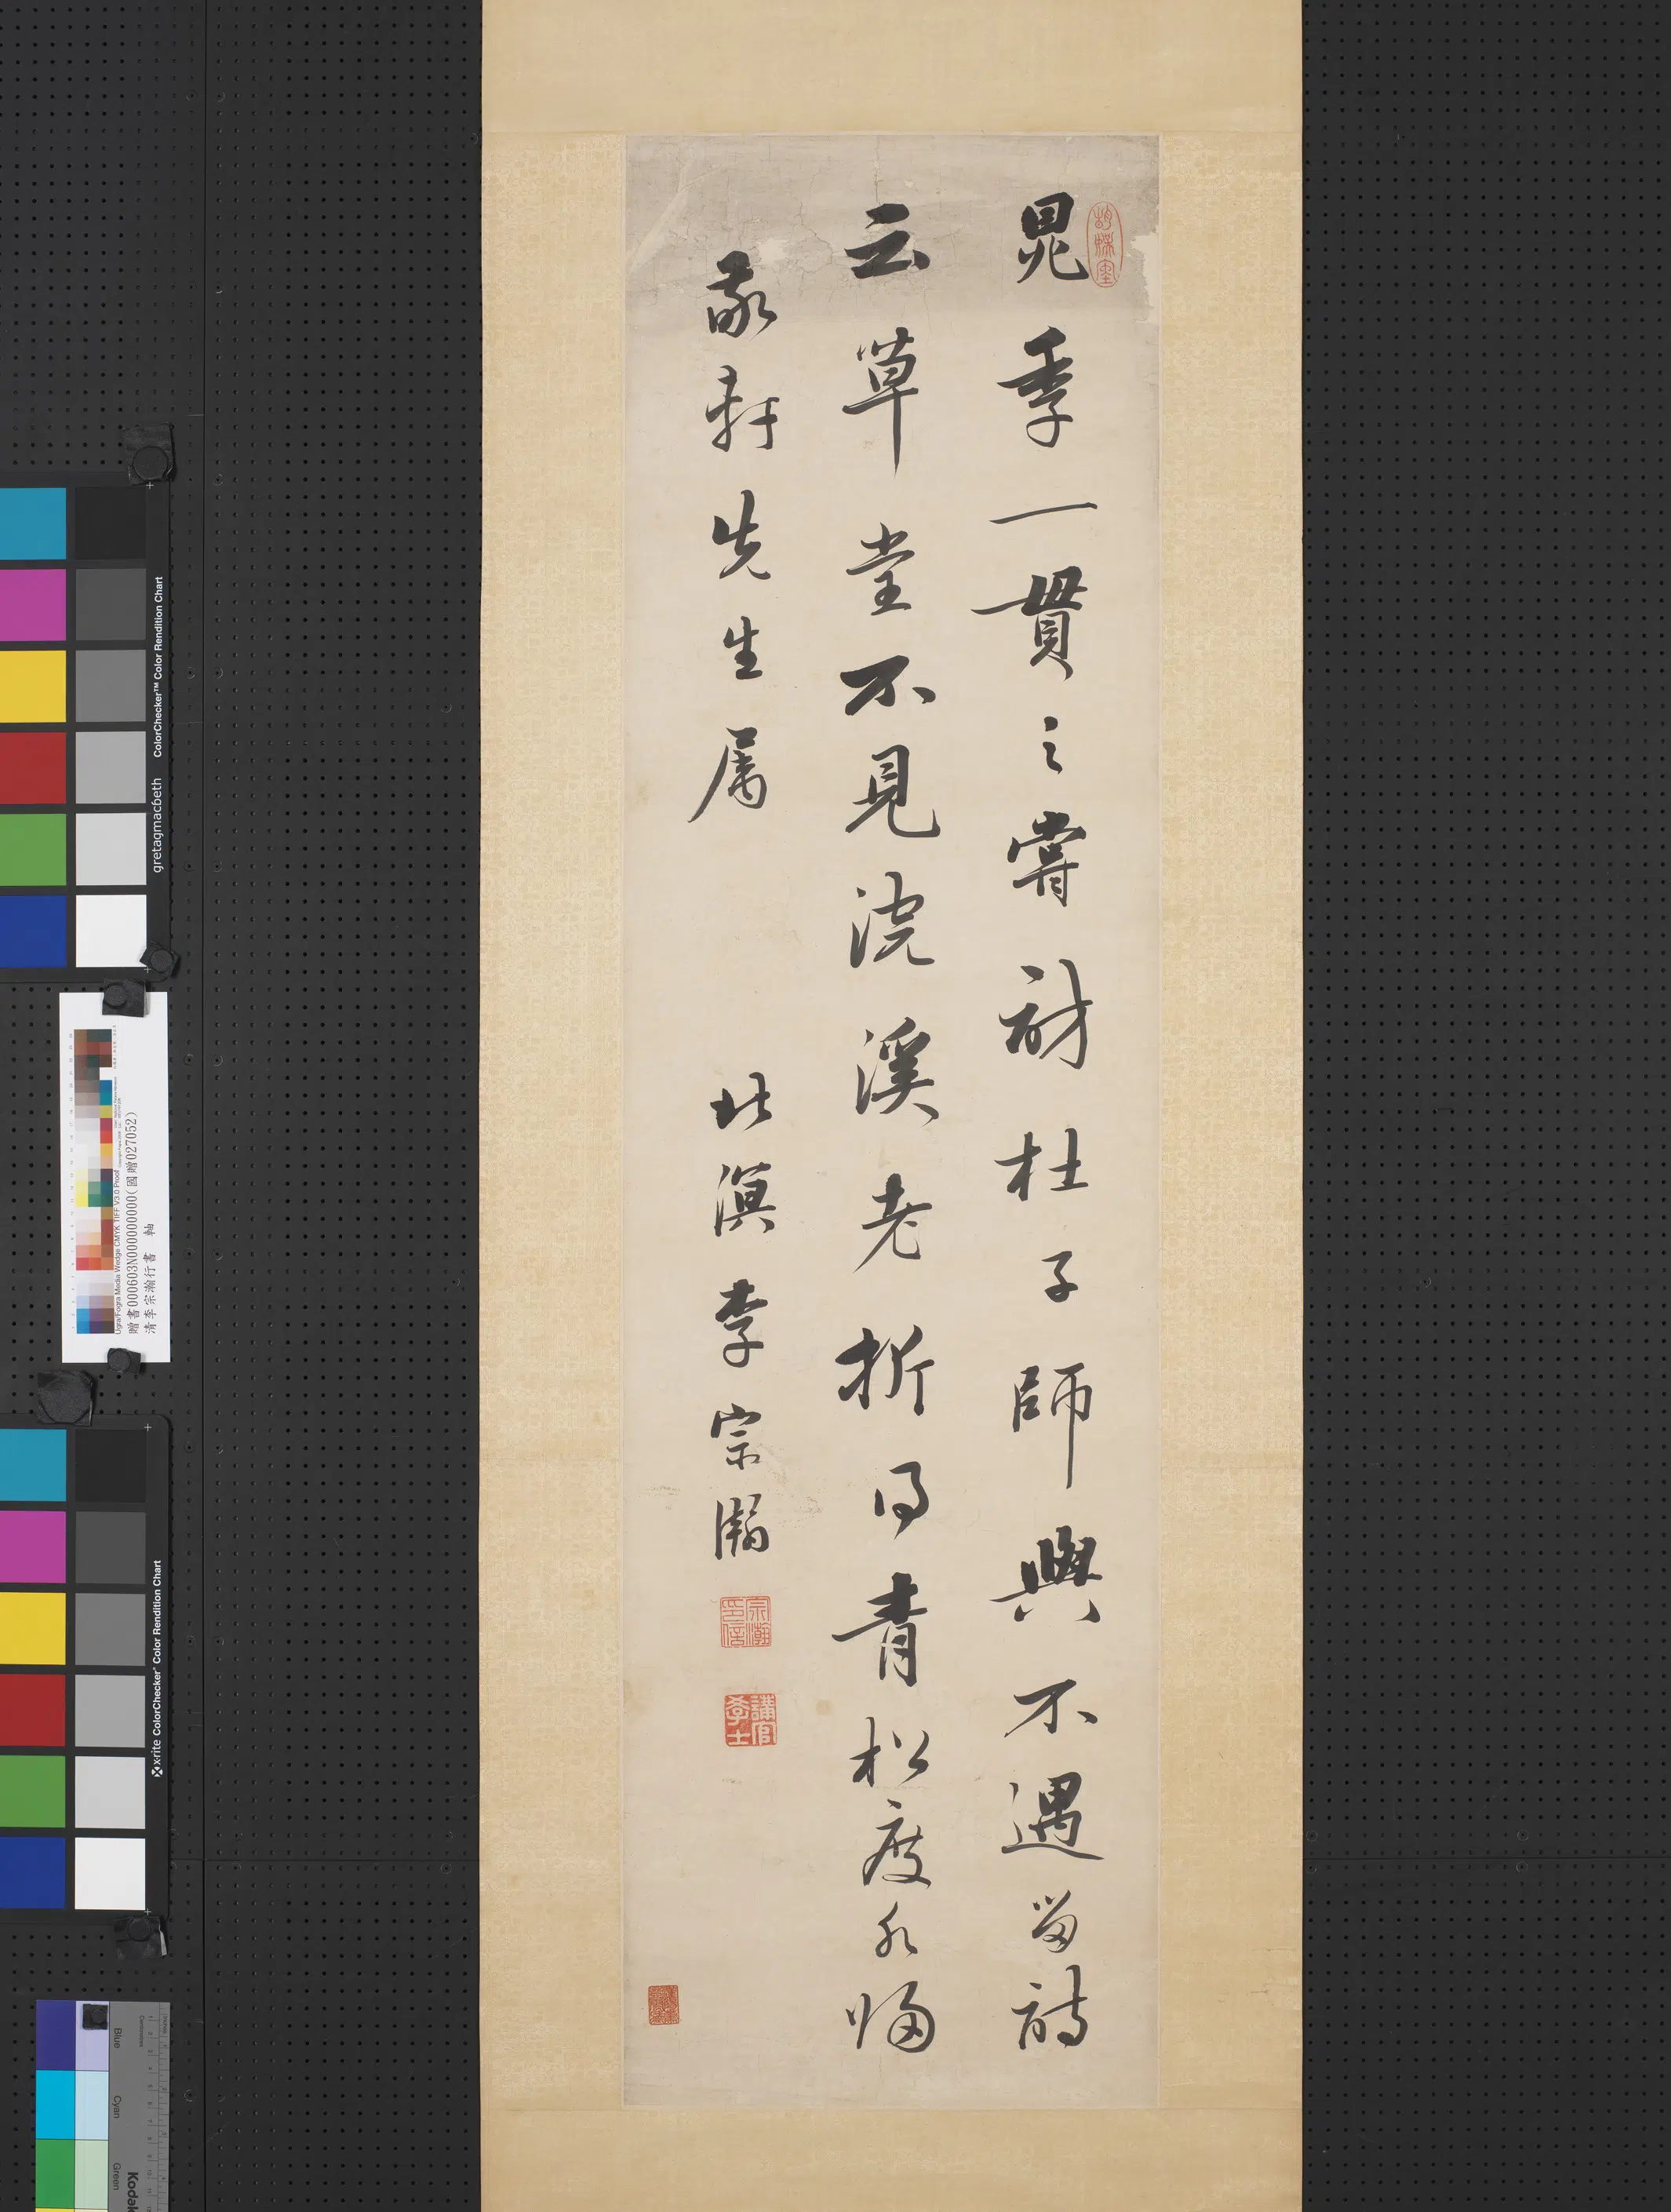 靜娛室
晁季一貫之嘗訪杜子師輿不遇留詩
云草堂不見浣溪老折得青松度水歸
敬軒先生属 北溟李宗瀚
宗瀚印信
講官學士
ColorChecker™ Color Rendition Chart
gretagmacbeth
Ugra/Fogra Media Wedge CMYK TIFF V3.0 Proof
贈書000603N000000000(國贈027052)
清李宗瀚行書 軸
x-rite ColorChecker® Color Rendition Chart
Blue
Cyan
Green
Centimetres
Kodak